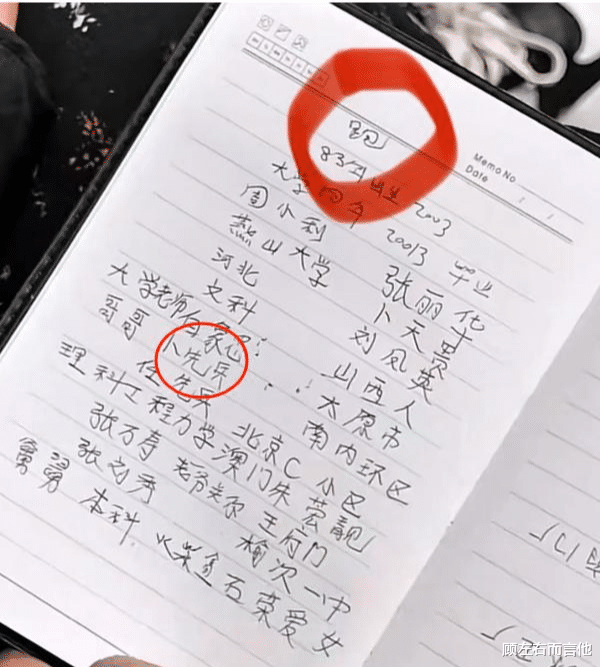 Memo No
Date
跑
83年出生 2003
大学四年 20013 毕业
周小利 张丽华
燕山大学 卜天
河北 刘凤英
文科 山西人
大学老师 白家 太原市
哥哥 卜先兵 南内环区
任先兵 北京C小区
理科工程力学 澳门朱芸靓
张万寿 王府门
张刘秀 榆次一中
舅舅 本科 火柴盒 石荣爱女
顾左右而言他